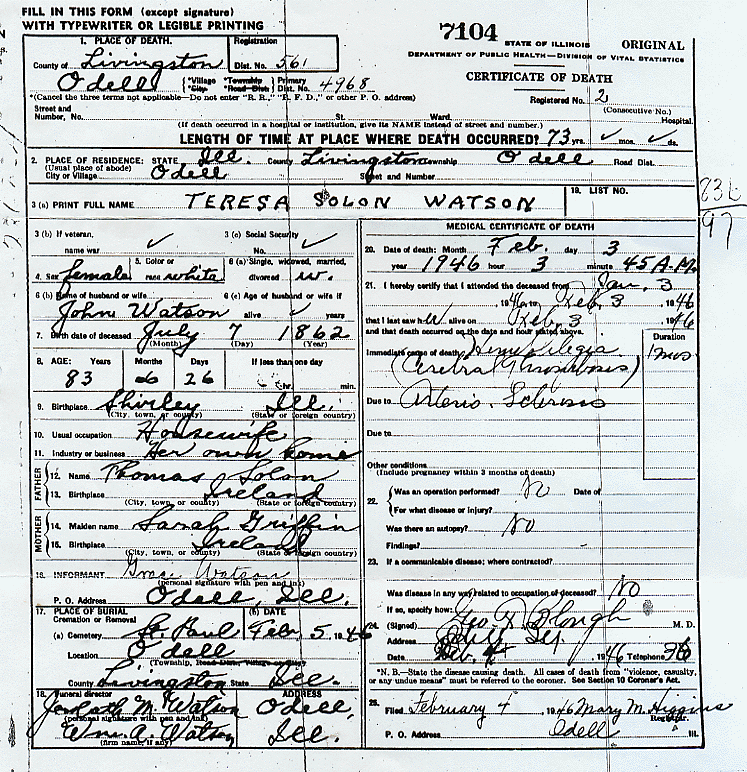 FILL IN THIS FORM (except signature)
WITH TYPEWRITER OR LEGIBLE PRINTING
7104
STATE OF ILLINOIS ORIGINAL
DEPARTMENT OF PUBLIC HEALTH—DIVISION OF VITAL STATISTICS
CERTIFICATE OF DEATH
1. PLACE OF DEATH.
County of Livingston
Registration Dist. No. 561
Odell
*Village *Township Primary
*City *Road Dist. Dist. No. 4968
Registered No. 2
(Consecutive No.)
*(Cancel the three terms not applicable—Do not enter "R. R.," "R. F. D.," or other P. O. address)
Street and Number, No. St. Ward. Hospital.
(If death occurred in a hospital or institution, give its NAME instead of street and number.)
LENGTH OF TIME AT PLACE WHERE DEATH OCCURRED? 73 yrs. ✓ mos. ✓ ds.
2. PLACE OF RESIDENCE: STATE Ill. County Livingston Township Odell Road Dist.
(Usual place of abode)
City or Village Odell Street and Number
3 (a) PRINT FULL NAME TERESA SOLON WATSON
19. LIST NO.
83b
97
3 (b) If veteran, name war ✓
3 (c) Social Security No. ✓
4. Sex female
5. Color or race white
6 (a) Single, widowed, married, divorced w.
6 (b) Name of husband or wife John Watson
6 (c) Age of husband or wife if alive ✓ years
7. Birth date of deceased July 7 1862
(Month) (Day) (Year)
8. AGE: Years Months Days If less than one day
83 6 26 hr. min.
9. Birthplace Shirley Ill.
(City, town, or county) (State or foreign country)
10. Usual occupation Housewife
11. Industry or business Her own home
FATHER
12. Name Thomas Solon
13. Birthplace Ireland
(City, town, or county) (State or foreign country)
MOTHER
14. Maiden name Sarah Griffin
15. Birthplace Ireland
(City, town, or county) (State or foreign country)
16. INFORMANT Grace Watson
(personal signature with pen and ink)
P. O. Address Odell, Ill.
17. PLACE OF BURIAL Cremation or Removal
(b) DATE
(a) Cemetery St. Paul Feb. 5 1946
Location Odell
(Township, Road Dist., Village or City)
County Livingston State Ill.
18. Funeral director ADDRESS
Watson Odell,
(personal signature with pen and ink)
Wm. A. Watson Ill.
(firm name, if any)
MEDICAL CERTIFICATE OF DEATH
20. Date of death: Month Feb. day 3
year 1946 hour 3 minute 45 A.M.
21. I hereby certify that I attended the deceased from Jan. 3
1946 to Feb. 3 1946
that I last saw h alive on Feb. 3 1946
and that death occurred on the date and hour stated above.
Duration
Immediate cause of death Hemiplegia 1 mos
(Cerebral Thrombosis)
Due to Arterio Sclerosis
Due to
Other conditions
(Include pregnancy within 3 months of death)
22. Was an operation performed? No Date of
For what disease or injury?
Was there an autopsy? No
Findings?
23. If a communicable disease; where contracted?
Was disease in any way related to occupation of deceased? No
If so, specify how:
24. (Signed) Geo. Blough M. D.
Address Odell Ill.
Date Feb. 4 1946 Telephone 36
*N. B.—State the disease causing death. All cases of death from "violence, casualty, or any undue means" must be referred to the coroner. See Section 10 Coroner's Act.
25. Filed February 4 1946 Mary M. Higgins
Registrar.
P. O. Address Odell Ill.